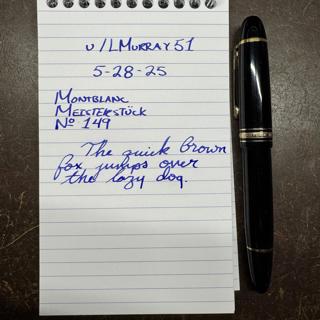 u/LMurray51
5-28-25
Montblanc
Meisterstück
Nº 149
The quick brown
fox jumps over
the lazy dog.